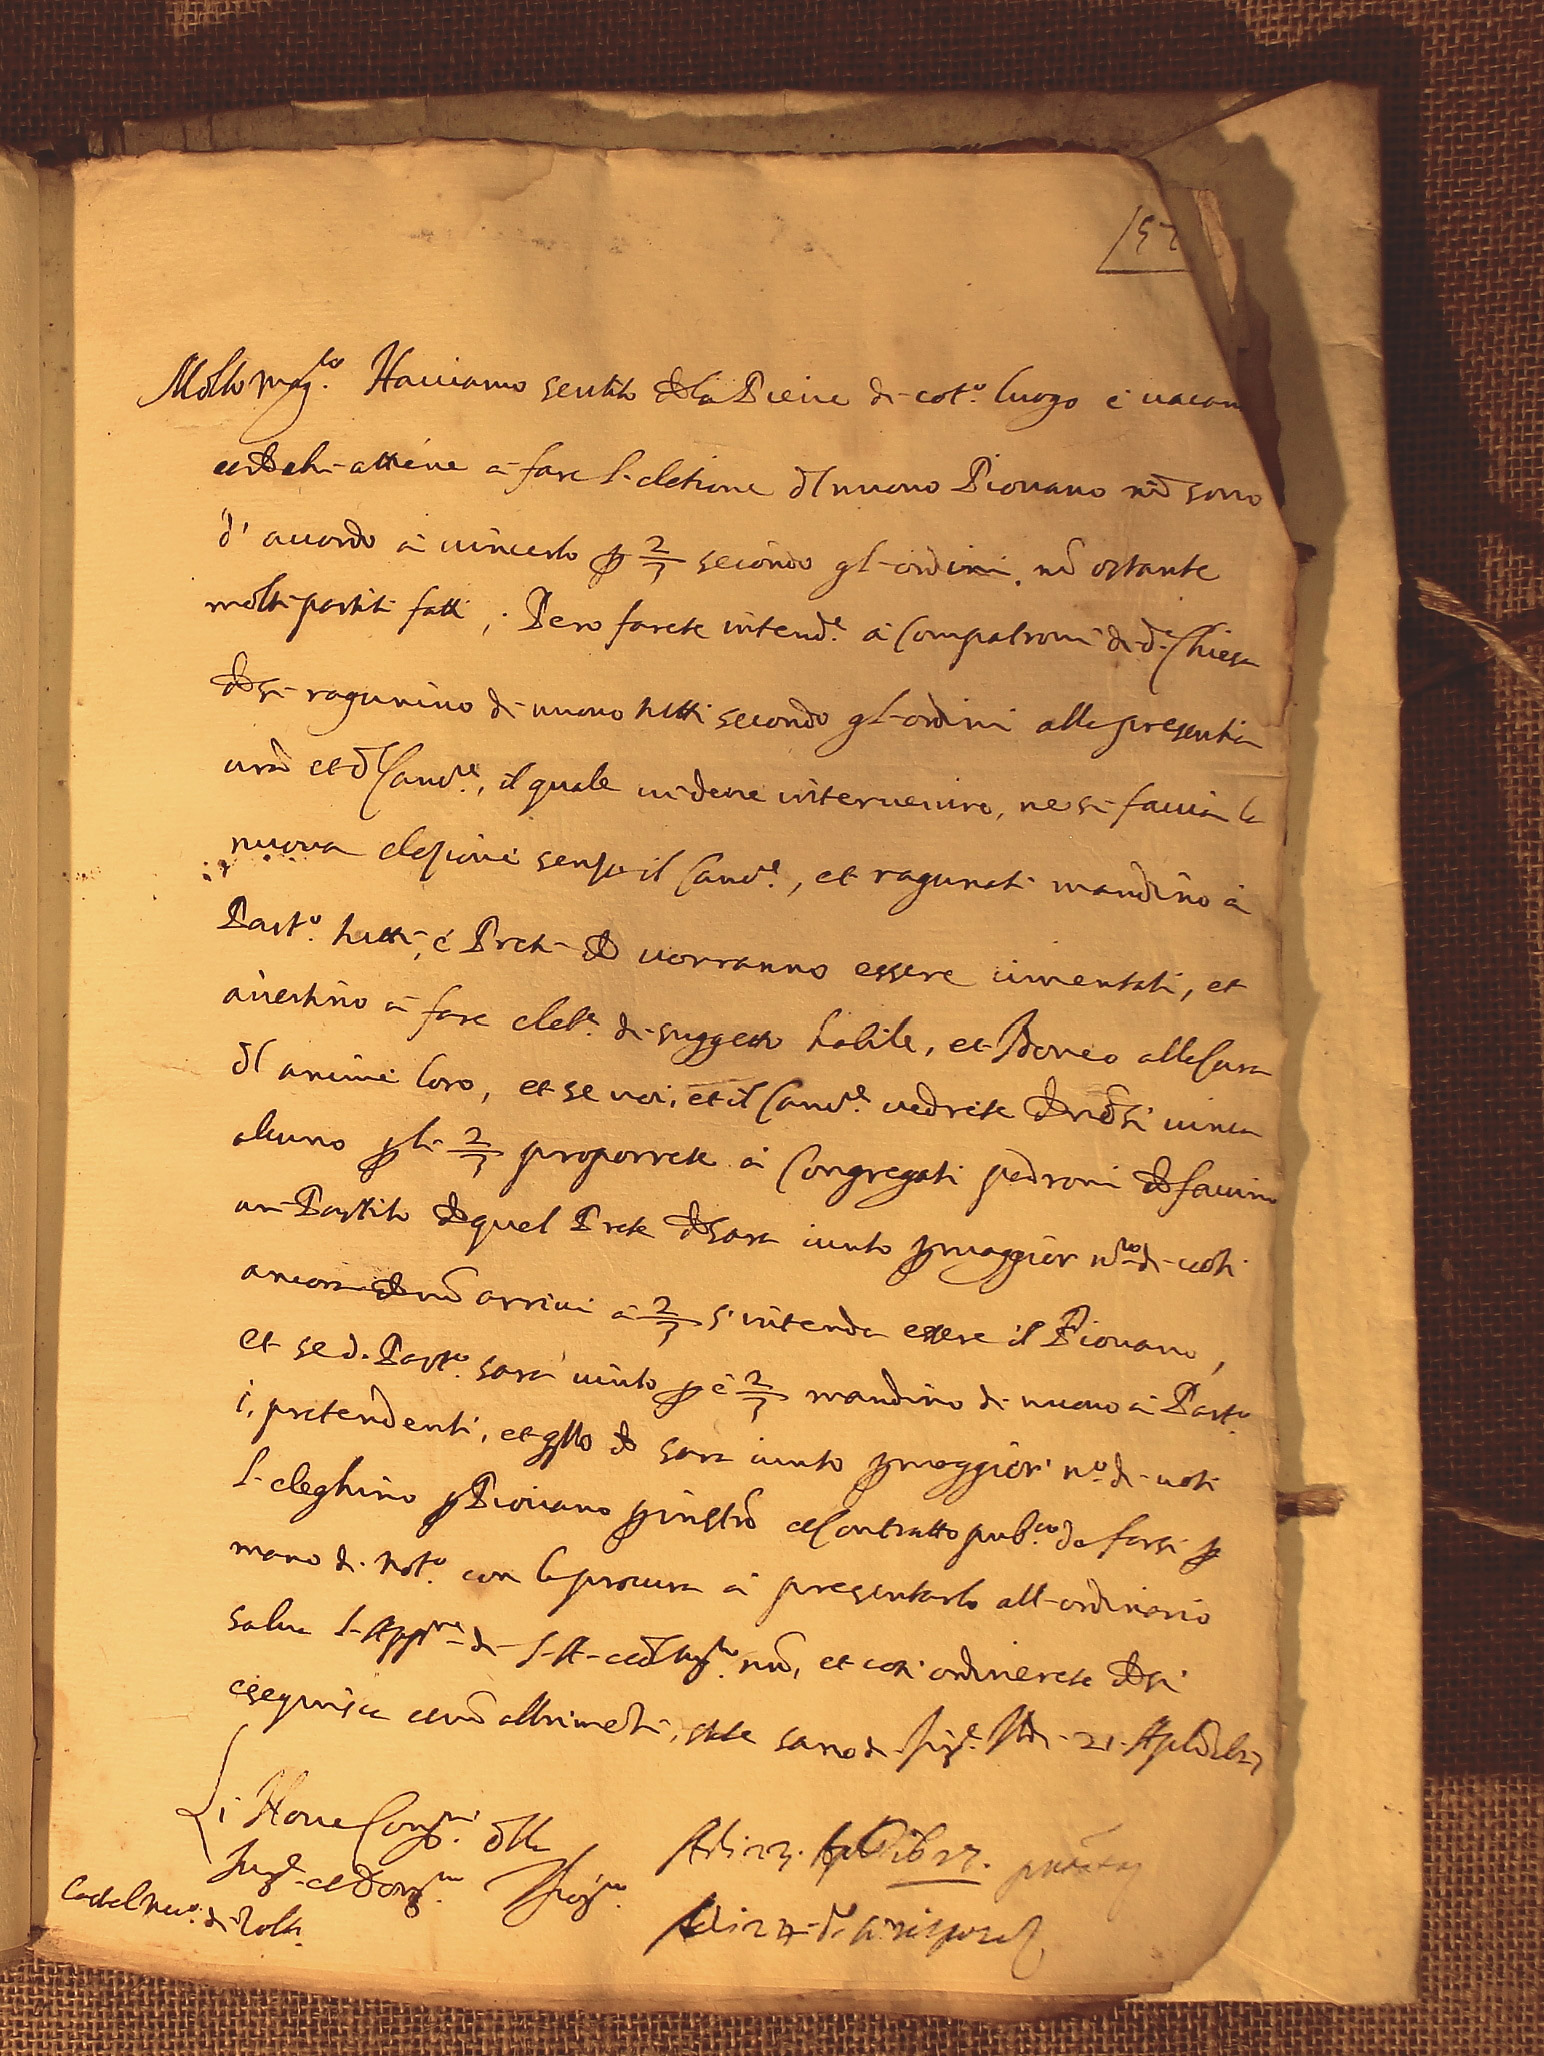 157
Molto mag.co Hauiamo sentito che la Pieue di cot.o luogo è uacan
et che chi attiene à fare l'eletione del nuouo Piouano nõ sono
d'accordo à uincerlo p 2/3 secõndo gl'ordini, nõ ostante
molti partiti fatti; Però farete intend.e à Compatroni di d.a Chiesa
che si ragunino di nuouo tutti secondo gl'ordini alla presentia
urã et del Canc.re, il quale ui deue interuenire, ne si faccia la
nuoua elezione senza il Canc.re, et ragunati mandino à
Part.o tutti è Preti che uorranno essere cimentati, et
à fare elet.e di suggetto habile, et Idoneo alla Cura
dl anime loro, et se uoi, et il Canc.re uedrete che nõ si uinca
alcuno p li 2/3 proporrete à Congregati padroni che faccino
un Partito che quel Prete che sara uinto p maggior n.ro di uoti
ancora che nõ arriui à 2/3 s'intenda essere il Piouano,
et se d. Part.o sarà uinto p è 2/3 mandino di nuouo à Part.o
i, pretendenti, et qllo che sara uinto p maggior n.o di uoti
l'eleghino p Piouano p inst.o et Contratto pub.co da farsi p
mano di Not.o con la procura à presentarlo all'ordinario
salua l'App.ne di S.A. nrõ, et così ordinerete che si
eseguisca et nõ altrimenti, state sano di 21 Aple 1627
Li Noue Cons.ri della
Iurs.e et Dom.o Fior.no
Adi 23. Aple 1627. pntata
Adi 27 d.o risposta
Castel Nuo.o di